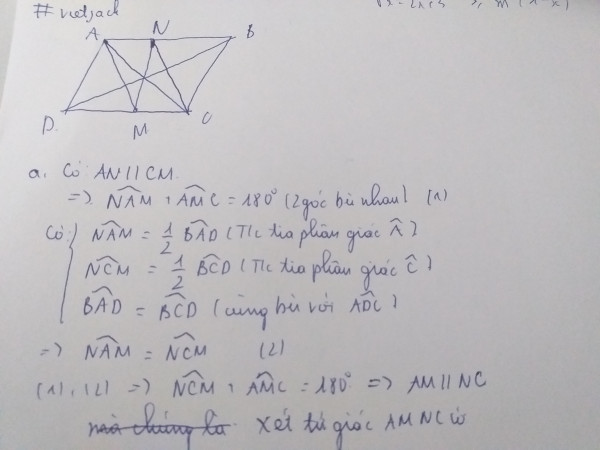 # vietjack
A N B
D M C
a. Có AN // CM
=> N̂AM + ÂMC = 180° (2 góc bù nhau) (1)
Có: N̂AM = 1/2 B̂AD (T/c tia phân giác Â)
N̂CM = 1/2 B̂CD (T/c tia phân giác Ĉ)
B̂AD = B̂CD (cùng bù với ÂDC)
=> N̂AM = N̂CM (2)
(1), (2) => N̂CM + ÂMC = 180° => AM // NC
Xét tứ giác AMNC có